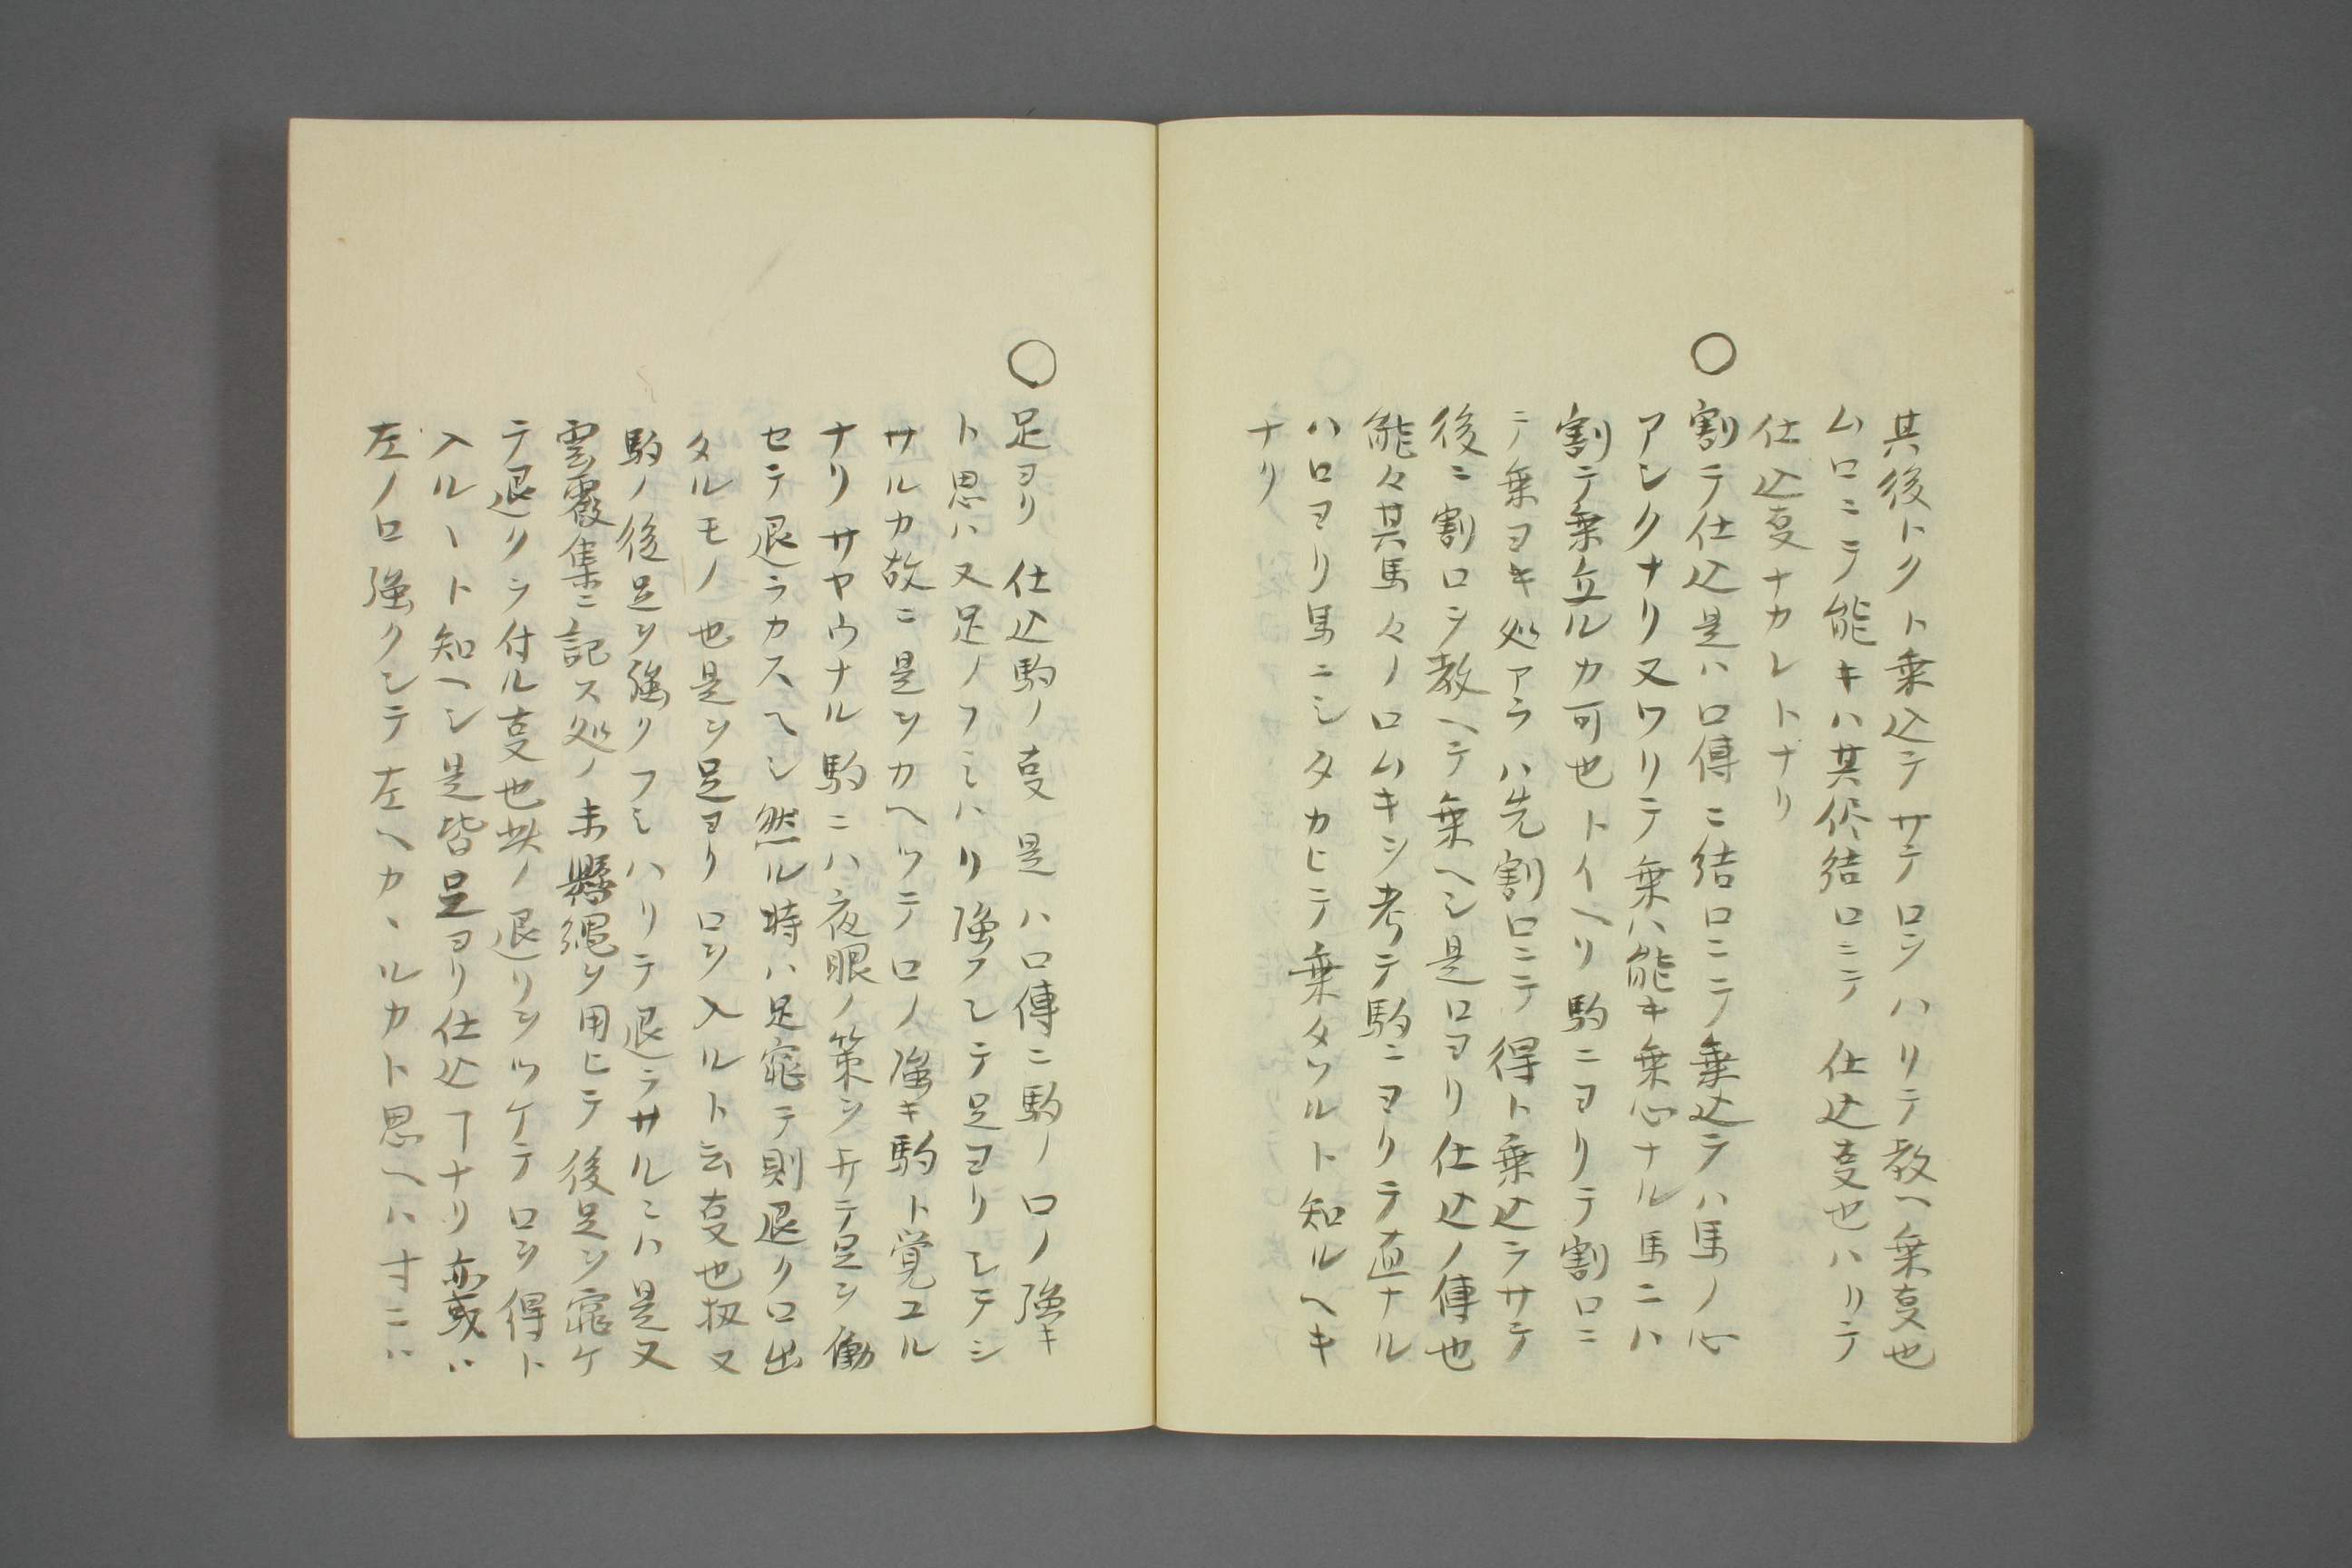 其後トクト乗込テサテ口ヲハリテ教ヘ乗㕝也
ム口ニテ能キハ其侭結口ニテ仕込㕝也ハリテ
仕込㕝ナカレトナリ
○割テ仕込是ハ口傳ニ結口ニテ乗込テハ馬ノ心
アシクナリ又ワリテ乗ハ能キ乗心ナル馬ニハ
割テ乗立ルカ可也トイヘリ駒ニヨリテ割口ニ
テ乗ヨキ処アラハ先割口ニテ得ト乗込ラサテ
後ニ割口ヲ教ヘテ乗ヘシ是口ヨリ仕込ノ傳也
能々其馬々ノ口ムキヲ考テ駒ニヨリテ直ナル
ハ口ヨリ馬ニシタカヒテ乗タツルト知ルヘキ
ナリ
○足ヨリ仕込駒ノ㕝是ハ口傳ニ駒ノ口ノ強キ
ト思ハ又足ノフミハリ強フシテ足ヨリシテシ
サルカ故ニ是ヲカヘツテ口ノ強キ駒ト覚ユル
ナリサヤウナル駒ニハ夜眼ノ策ヲ以テ足ヲ働
セテ退ラカスヘシ然ル時ハ足寵テ則退ク口出
タルモノ也是ヲ足ヨリ口ヲ入ルト云㕝也扨又
駒ノ後足ヲ強クフミハリテ退ラサルニハ是又
雲霞集ニ記ス処ノ未懸縄ヲ用ヒテ後足ヲ寵ケ
テ退クラ付ル㕝也此ノ退リヲツケテ口ヲ得ト
入ルヽト知ヘシ是皆足ヨリ仕込ヿナリ亦或ハ
左ノ口強クシテ左ヘカヽルカト思ヘハ寸ニハ